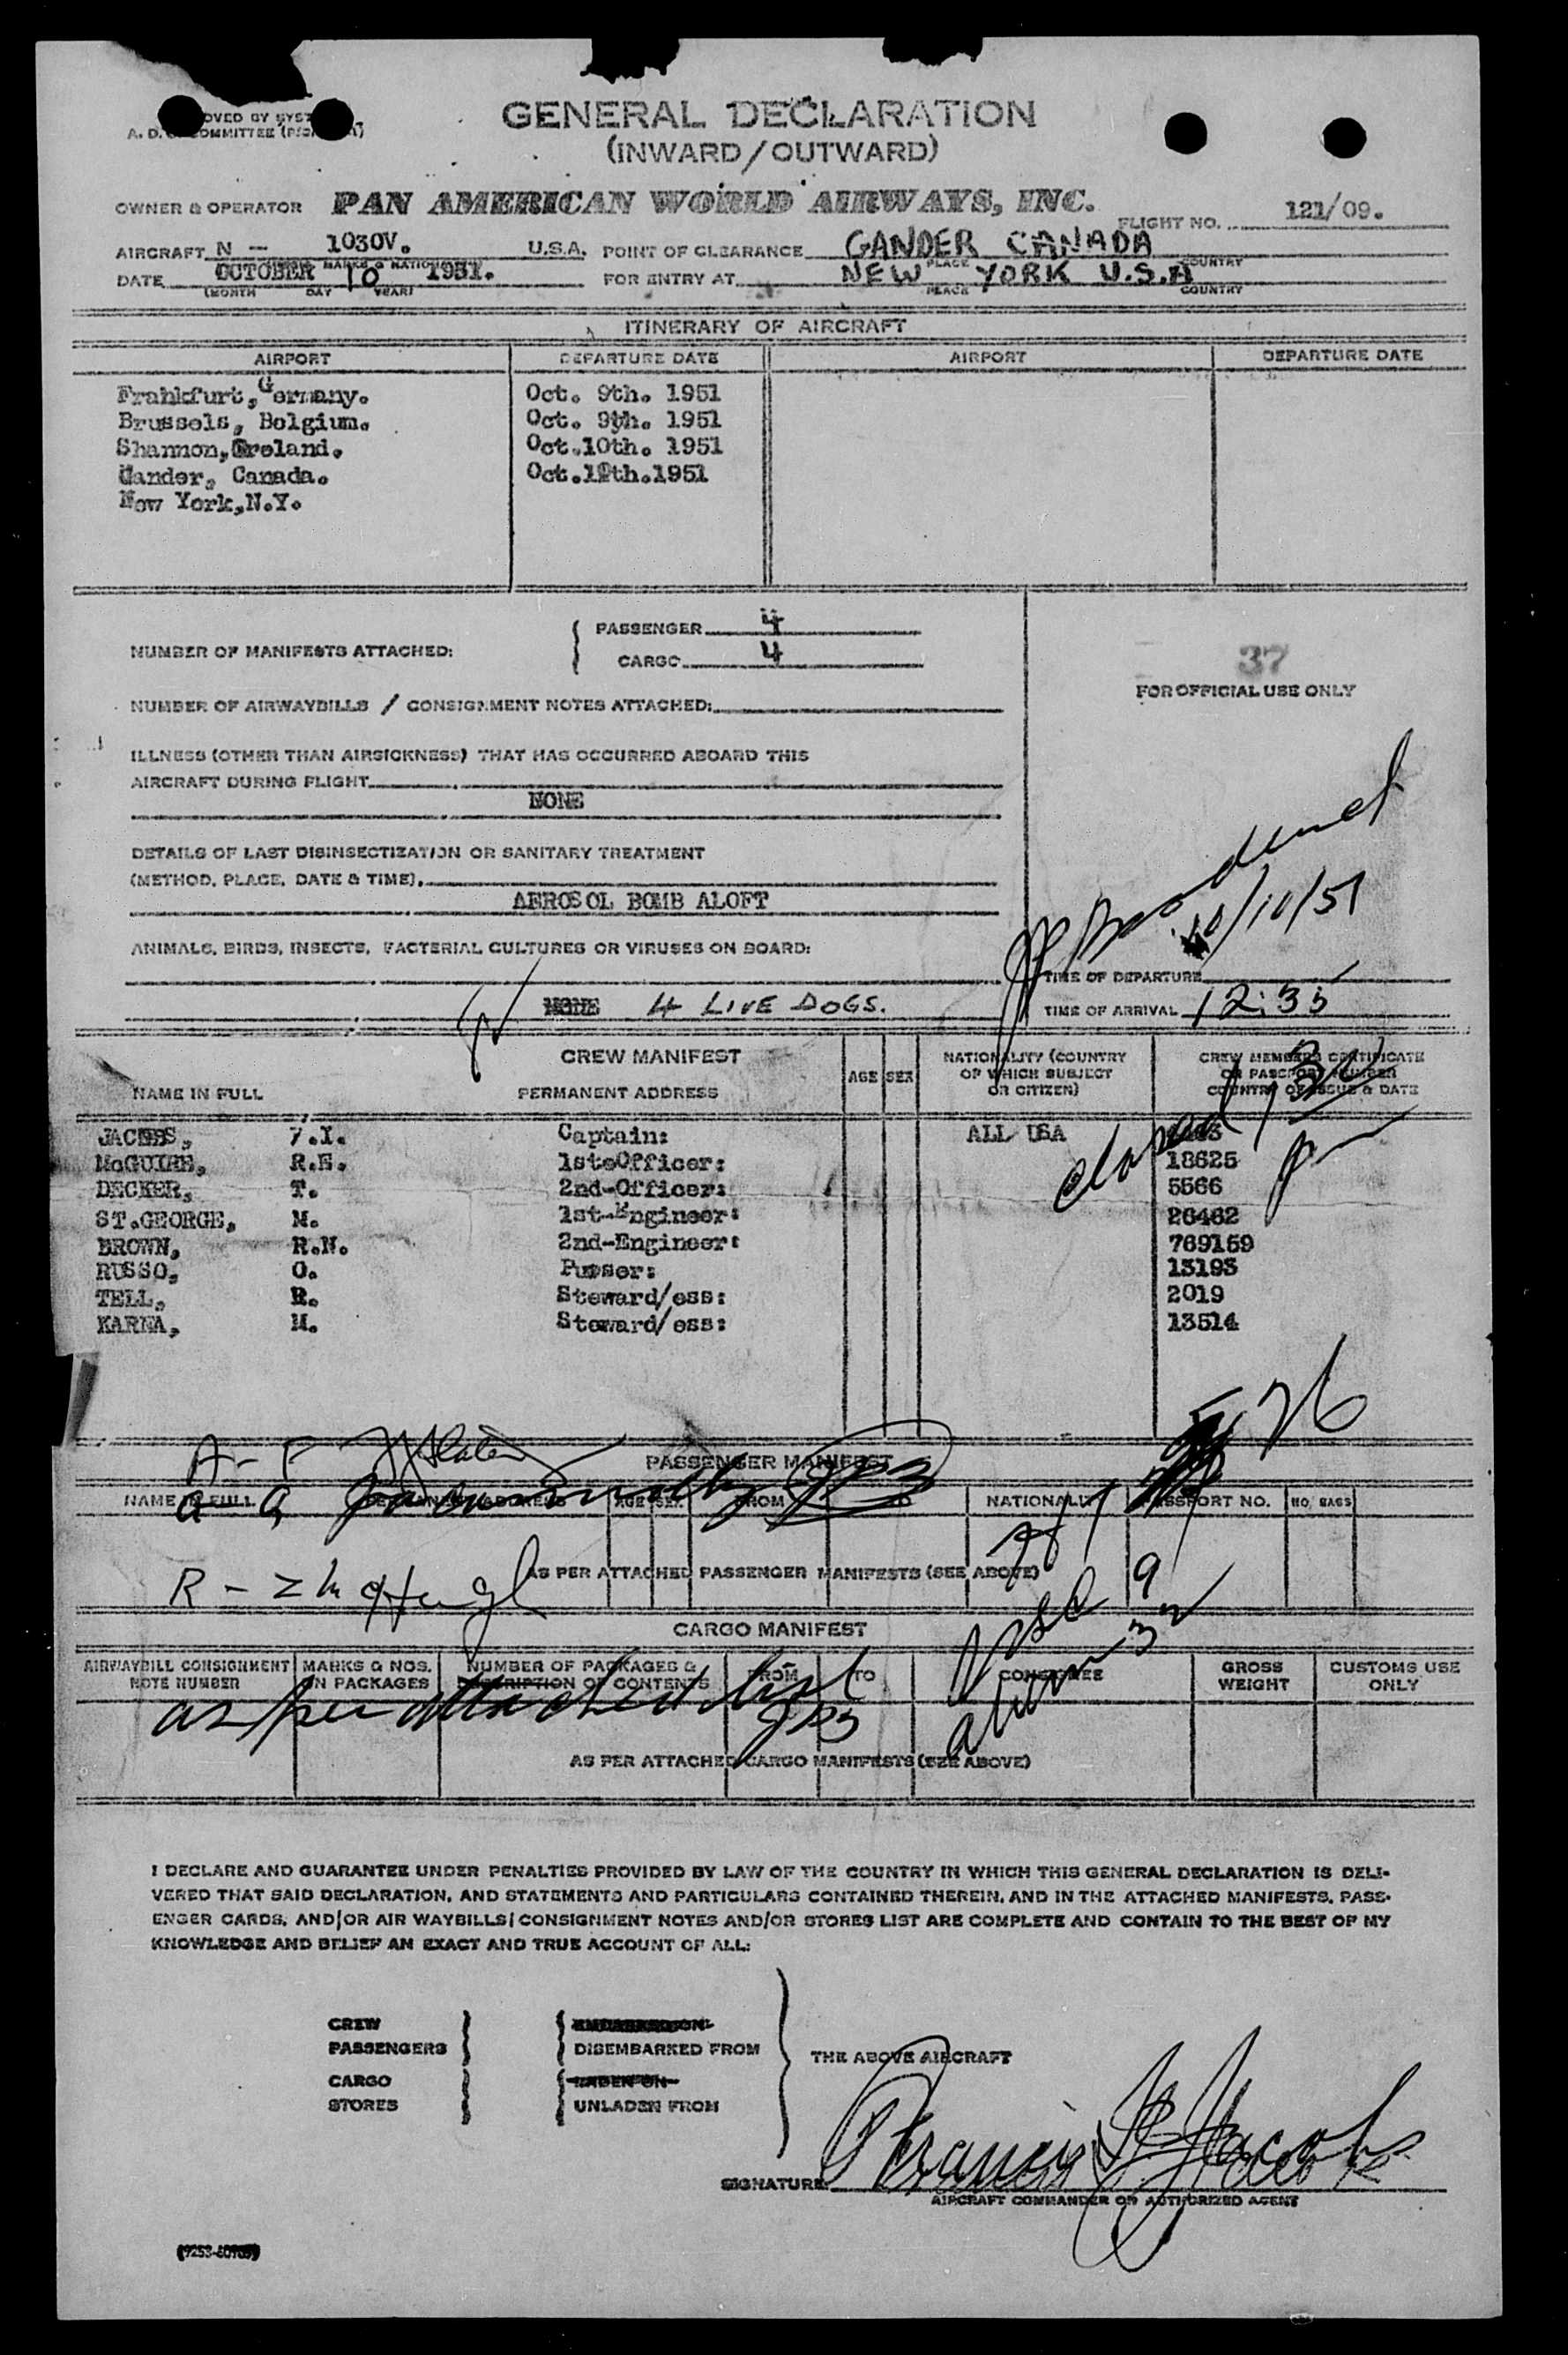 GENERAL DECLARATION
(INWARD/OUTWARD)
OWNER & OPERATOR PAN AMERICAN WORLD AIRWAYS, INC. FLIGHT NO. 121/09.
AIRCRAFT N - 1030V. U.S.A. POINT OF CLEARANCE GANDER CANADA
MARKS & NATIO PLACE COUNTRY
DATE OCTOBER 10 1951. FOR ENTRY AT NEW YORK U.S.A
(MONTH DAY YEAR) PLACE COUNTRY
ITINERARY OF AIRCRAFT
AIRPORT DEPARTURE DATE AIRPORT DEPARTURE DATE
Frahkfurt,Germany. Oct. 9th. 1951
Brussels, Belgium. Oct. 9th. 1951
Shannon, Ireland. Oct.10th. 1951
Gander, Canada. Oct.10th.1951
New York,N.Y.
NUMBER OF MANIFESTS ATTACHED: PASSENGER 4
CARGO 4
37
FOR OFFICIAL USE ONLY
NUMBER OF AIRWAYBILLS / CONSIGNMENT NOTES ATTACHED:
ILLNESS (OTHER THAN AIRSICKNESS) THAT HAS OCCURRED ABOARD THIS
AIRCRAFT DURING FLIGHT
NONE
DETAILS OF LAST DISINSECTIZATION OR SANITARY TREATMENT
(METHOD, PLACE, DATE & TIME).
AEROSOL BOMB ALOFT
10/10/51
ANIMALS, BIRDS, INSECTS, FACTERIAL CULTURES OR VIRUSES ON BOARD:
TIME OF DEPARTURE
NONE 4 LIVE DOGS.
TIME OF ARRIVAL 12:35
CREW MANIFEST
NAME IN FULL PERMANENT ADDRESS AGE SEX NATIONALITY (COUNTRY OF WHICH SUBJECT OR CITIZEN) CREW MEMBERS CERTIFICATE OR PASSPORT NUMBER COUNTRY OF ISSUE & DATE
JACOBS, F.I. Captain: ALL USA
McGUIRE, R.E. 1steOfficer: 18625
DECKER, T. 2nd-Officer: 5566
ST.GEORGE, M. 1st-Engineer: 26462
BROWN, R.N. 2nd-Engineer: 769159
RUSSO, O. Purser: 13193
TELL, R. Steward/ess: 2019
KARNA, M. Steward/ess: 13514
76
A - F
PASSENGER MANIFEST
NAME IN FULL PERMANENT ADDRESS AGE SEX FROM TO NATIONALITY PASSPORT NO. NO. BAGS
AS PER ATTACHED PASSENGER MANIFESTS (SEE ABOVE)
R - Z McHugh
USC 9
alien 32
CARGO MANIFEST
AIRWAYBILL CONSIGNMENT NOTE NUMBER MARKS & NOS. ON PACKAGES NUMBER OF PACKAGES & DESCRIPTION OF CONTENTS FROM TO CONSIGNEE GROSS WEIGHT CUSTOMS USE ONLY
as per attached list
AS PER ATTACHED CARGO MANIFESTS (SEE ABOVE)
I DECLARE AND GUARANTEE UNDER PENALTIES PROVIDED BY LAW OF THE COUNTRY IN WHICH THIS GENERAL DECLARATION IS DELI-
VERED THAT SAID DECLARATION, AND STATEMENTS AND PARTICULARS CONTAINED THEREIN, AND IN THE ATTACHED MANIFESTS, PASS-
ENGER CARDS, AND/OR AIR WAYBILLS/CONSIGNMENT NOTES AND/OR STORES LIST ARE COMPLETE AND CONTAIN TO THE BEST OF MY
KNOWLEDGE AND BELIEF AN EXACT AND TRUE ACCOUNT OF ALL:
CREW EMBARKED ON
PASSENGERS DISEMBARKED FROM
THE ABOVE AIRCRAFT
CARGO LADEN ON
STORES UNLADEN FROM
SIGNATURE: Francis I. Jacobs
AIRCRAFT COMMANDER OR AUTHORIZED AGENT